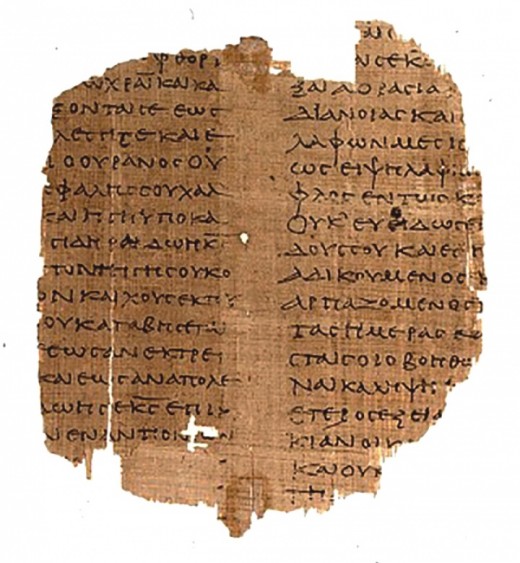 ΦΘΟΡΙ
ΩΧΡΑΙ ΚΑΙ ΚΑ
ΞΟΝΤΑΙ ΣΕ ΕΩΣ
ΛΕΣΗ ΣΕ ΚΑΙ Ε
Ι Ο ΟΥΡΑΝΟΣ Ο Υ
ΕΦΑΛΗΣ ΣΟΥ ΧΑΛ
ΚΑΙ Η ΓΗ Η ΥΠΟΚΑ
ΣΙΔΗΡΑ ΔΩΗ Κ̅Σ̅
ΤΗ ΓΗ ΣΟΥ ΚΟ
ΟΝ ΚΑΙ ΧΟΥΣ ΕΚ ΤΟΥ
ΟΥ ΚΑΤΑΒΗΣΕΤΑΙ
ΕΩΣ ΑΝ ΕΚΤΡΕΙ
ΚΑΙ ΕΩΣ ΑΝ ΑΠΟΛΕ
ΔΩΗ ΣΕ Κ̅Σ̅ ΕΠΙΚ
Ν ΕΝΑΝΤΙΟΝ
ΑΙ ΣΕ Κ̅Σ̅
ΞΙΑΙ ΑΟΡΑΣΙΑ
ΔΙΑΝΟΙΑΣ ΚΑΙ
ΛΑΦΩΝ ΜΕΣΗ
ΩΣΕΙ ΨΗΛΑΦΗ
ΦΛΟΣ ΕΝ ΤΩΙ ΣΚ
ΟΥΚ ΕΥΟΔΩΣΕΙ
ΔΟΥΣ ΣΟΥ ΚΑΙ ΕΣΗ
ΑΔΙΚΟΥΜΕΝΟΣ
ΑΡΠΑΖΟΜΕΝΟΣ Π
ΤΑΣ ΗΜΕΡΑΣ ΚΑΙ
ΣΤΑΙ ΣΟΙ Ο ΒΟΗΘΩ
ΝΑΙΚΑ ΛΗΨΗ
ΕΤΕΡΟΣ ΕΞΕΙ Α
ΚΙΑΝ ΟΙΚ
ΚΑΙ ΟΥΚ